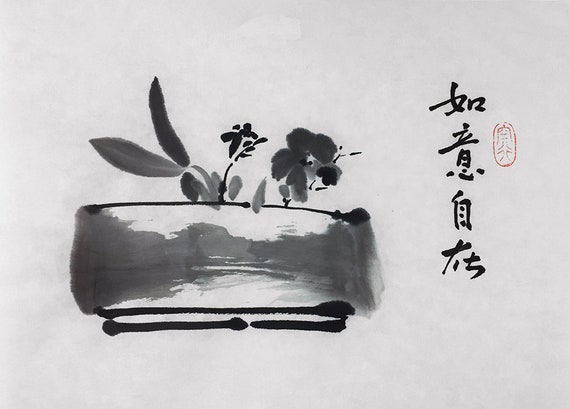 如意自在